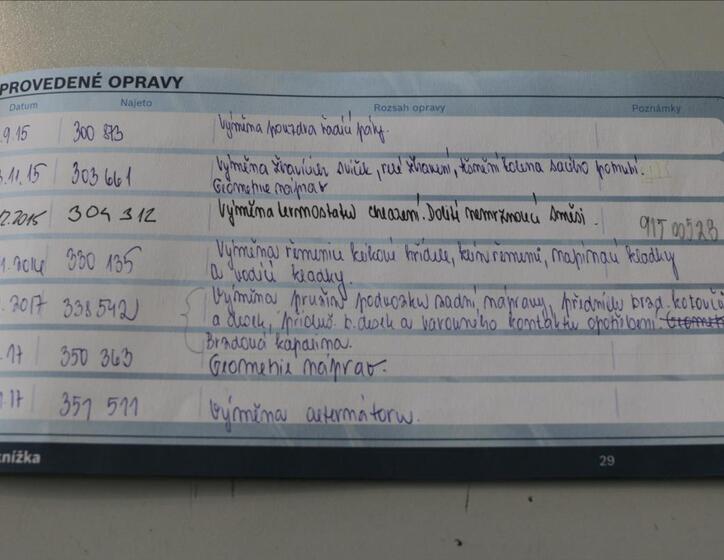 PROVEDENÉ OPRAVY
Datum Najeto Rozsah opravy Poznámky
.9.15 300 873 Výměna pouzdra řadící páky.
.11.15 303 661 Výměna žhavících svíček, relé žhavení, těsnění kolena sacího potrubí.
Geometrie náprav
2.2015 304 312 Výměna termostatu chlazení. Dolití nemrznoucí směsi. 915 00523
330 135 Výměna řemenu klikové hřídele, klín. řemenu, napínací kladky
a vodící kladky.
.2017 338542 Výměna pružin podvozku zadní nápravy, předních brzd. kotoučů
a desek, přísluš. b. desek a varovného kontaktu opotřebení.
Brzdová kapalina.
.17 350 363 Geometrie náprav.
.17 351 511 Výměna alternátoru.
nížka 29